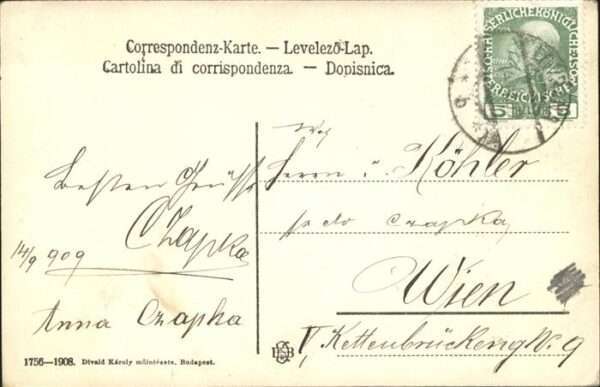 Correspondenz-Karte. — Levelező-Lap.
Cartolina di corrispondenza. — Dopisnica.
KAISERLICHE KÖNIGLICHE
ÖSTERREICHISCHE
5 5
Besten Grüsse
Czapka
14/9 909
Anna Czapka
Herrn u Köhler
Czapka
Wien
V, Kettenbrückeng N. 9
1756—1908. Divald Károly műintézete, Budapest.